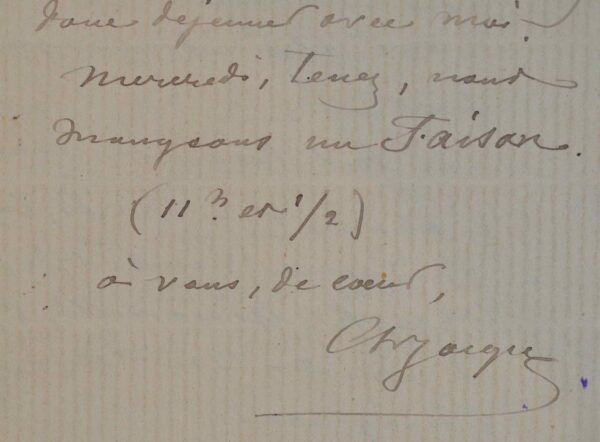 donc déjeuner avec moi
Mercredi, Tenez, nous
mangeons un Faison.
(11 h et 1/2)
à vous, de cœur,
Ch Jacque